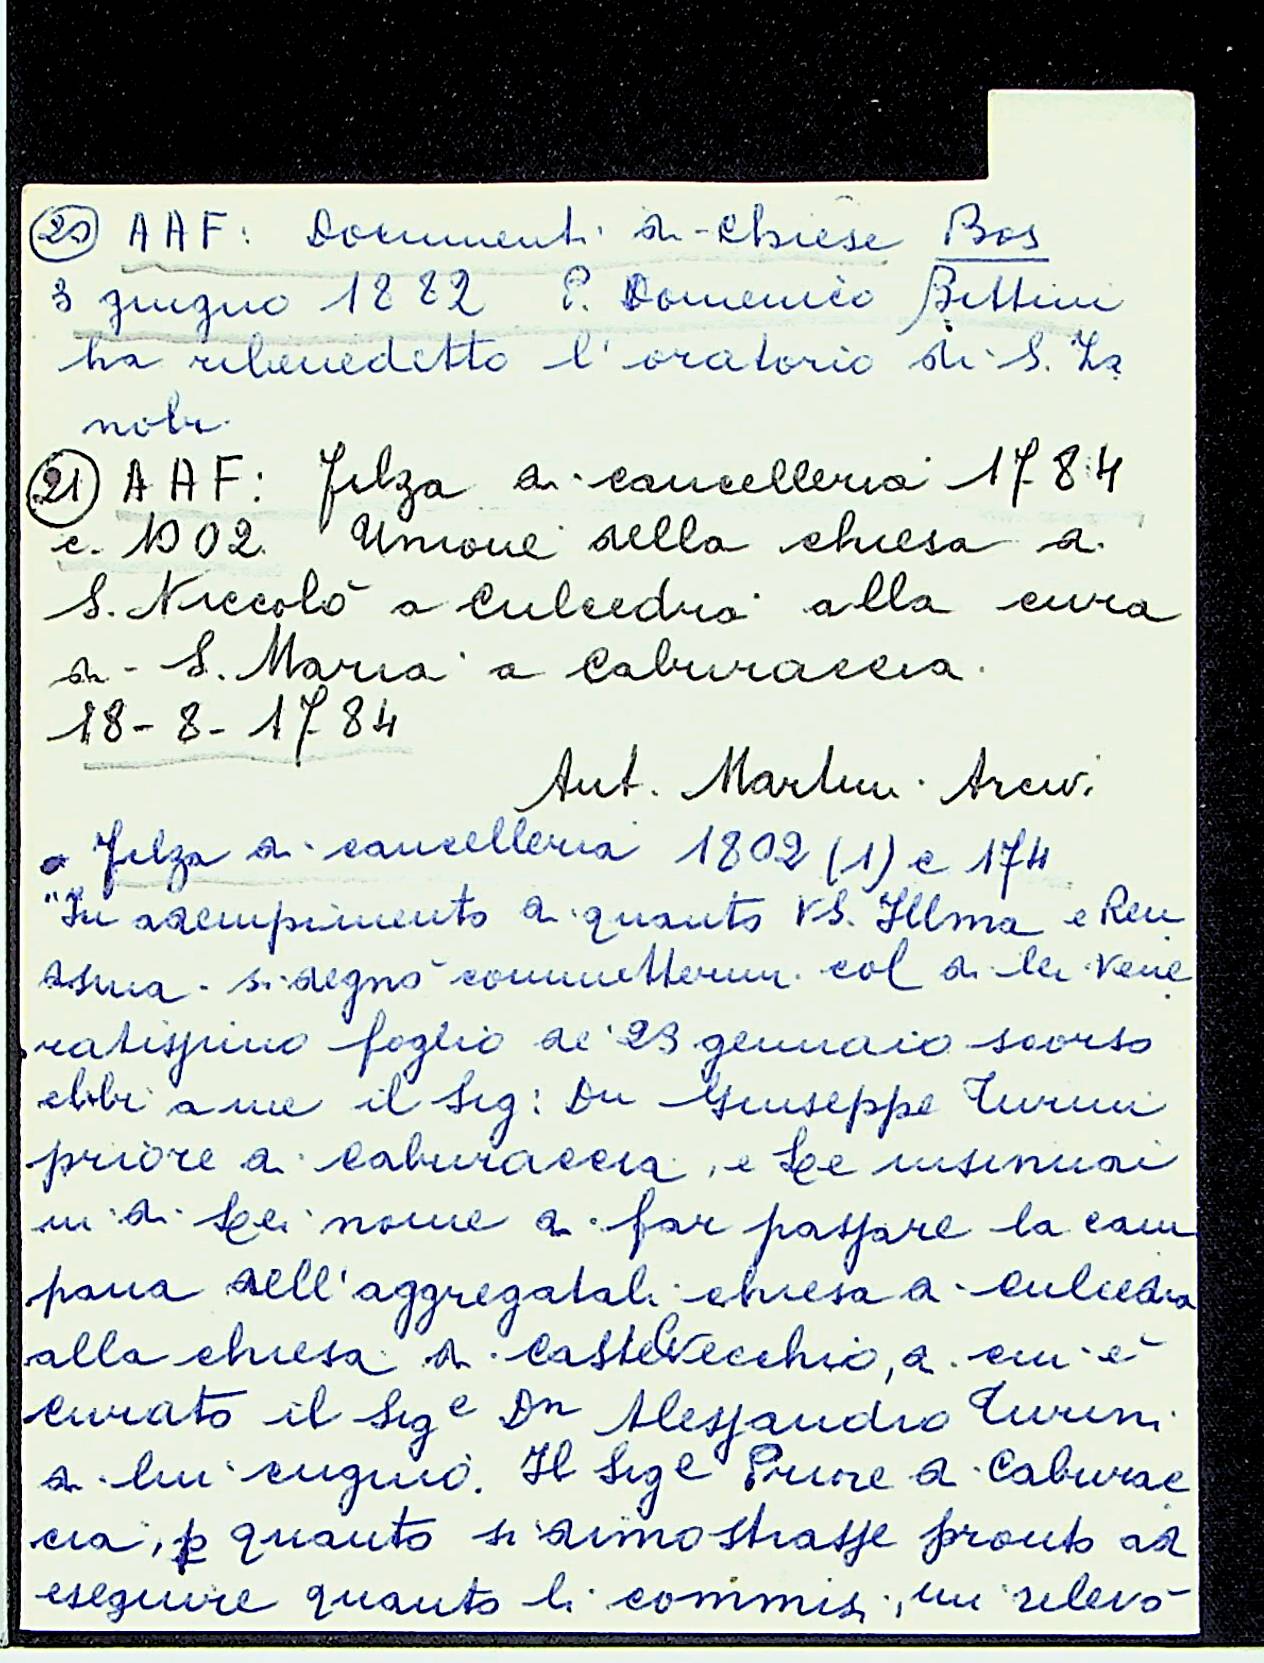 20 AAF: Documenti di chiese Bos
3 giugno 1882 P. Domenico Bettini
ha ribenedetto l'oratorio di S. Za
nobi.
21 AAF: Filza di cancelleria 1784
c. 1002. Unione della chiesa di
S. Niccolò a Culcedra alla cura
di S. Maria a Caburaccia.
18-8-1784
Ant. Martini Arciv.
Filza di cancelleria 1802 (1) c 174
"In adempimento di quanto VS. Illma e Rev
dsma si degnò commettermi col di lei vene
ratissimo foglio de' 23 gennaio scorso
ebbi a me il Sig: Dn Giuseppe Turini
priore di Caburaccia, e Le insinuai
in di Lei nome di far passare la cam
pana dell'aggregatali chiesa di Culcedra
alla chiesa di Castelvecchio, di cui è
curato il Sige Dn Alessandro Turini
di lui cugino. Il Sige Priore di Caburac
cia, p quanto si dimostrasse pronto ad
eseguire quanto li commisi, mi rilevò